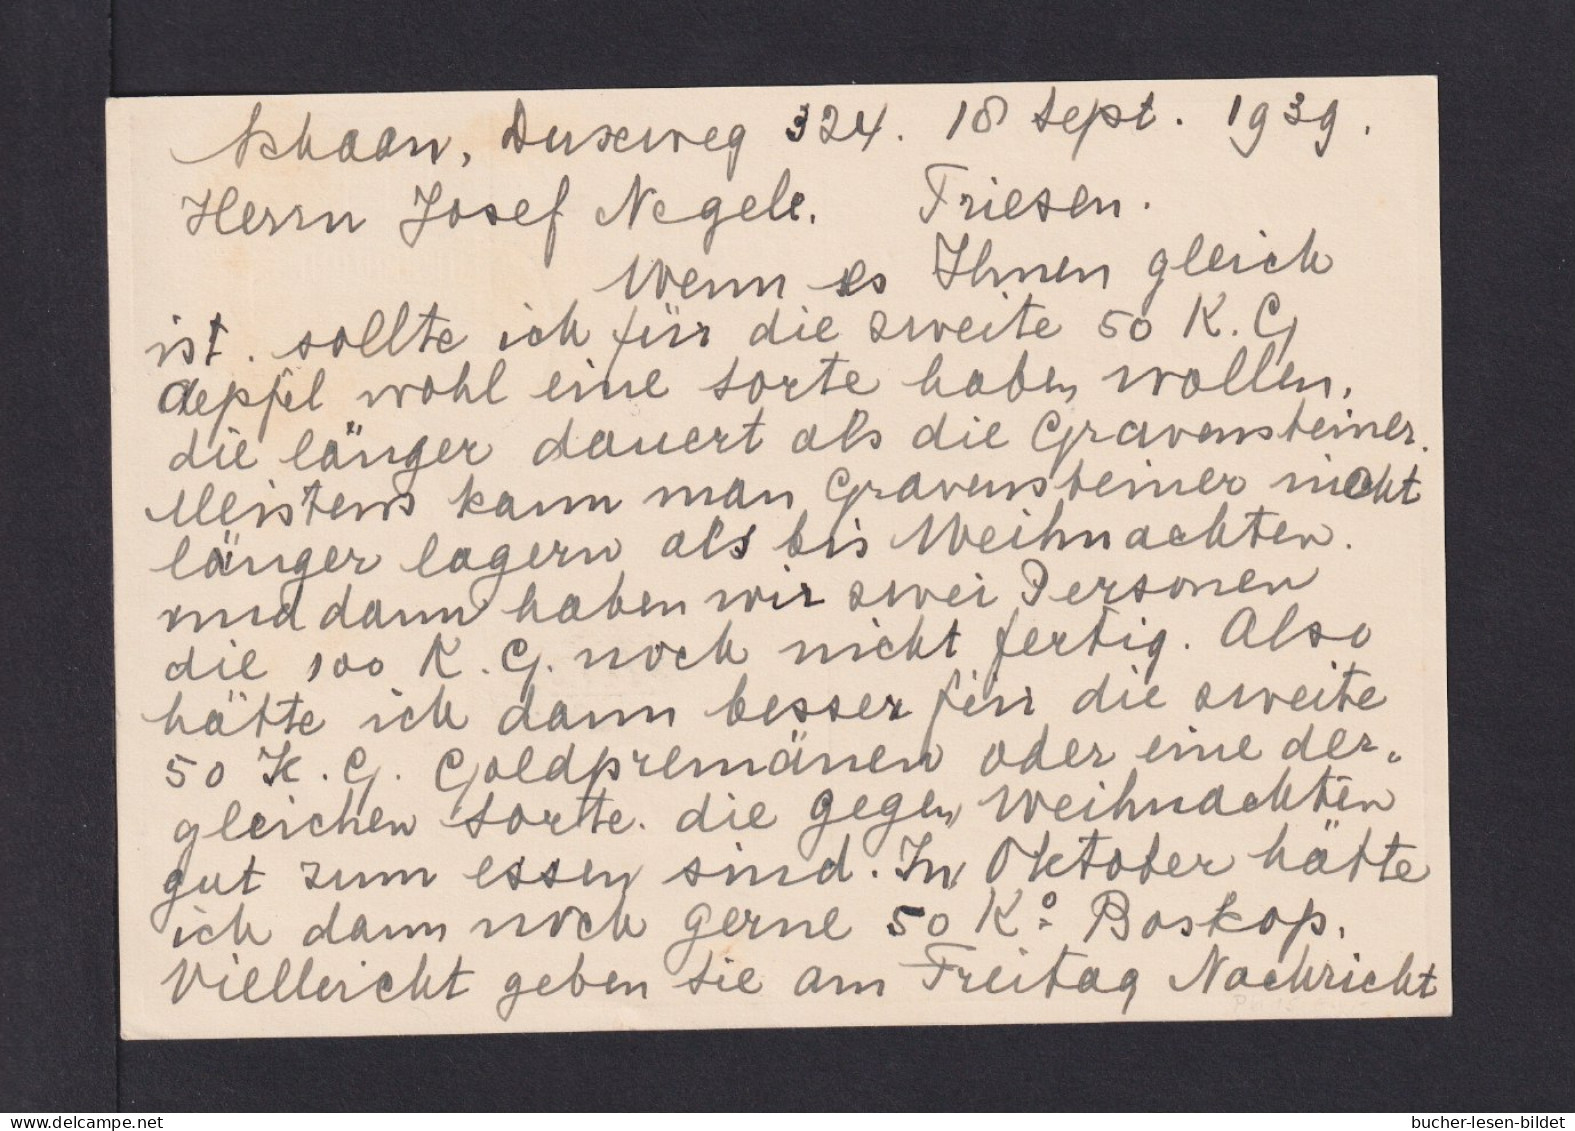 Schaan, Duxweg 324. 18 Sept. 1939.
Herrn Josef Negele. Triesen.
Wenn es Ihnen gleich
ist. sollte ich für die zweite 50 K. G
Aepfel wohl eine Sorte haben wollen,
die länger dauert als die Gravensteiner.
Meistens kann man Gravensteiner nicht
länger lagern als bis Weihnachten.
und dann haben wir zwei Personen
die 100 K. G. noch nicht fertig. Also
hätte ich dann besser für die zweite
50 K. G. Goldpremänen oder eine der-
gleichen Sorte. die gegen Weihnachten
gut zum essen sind. In Oktober hätte
ich dann noch gerne 50 Ko. Boskop.
Vielleicht geben Sie am Freitag Nachricht
bucher-lesen-bildet